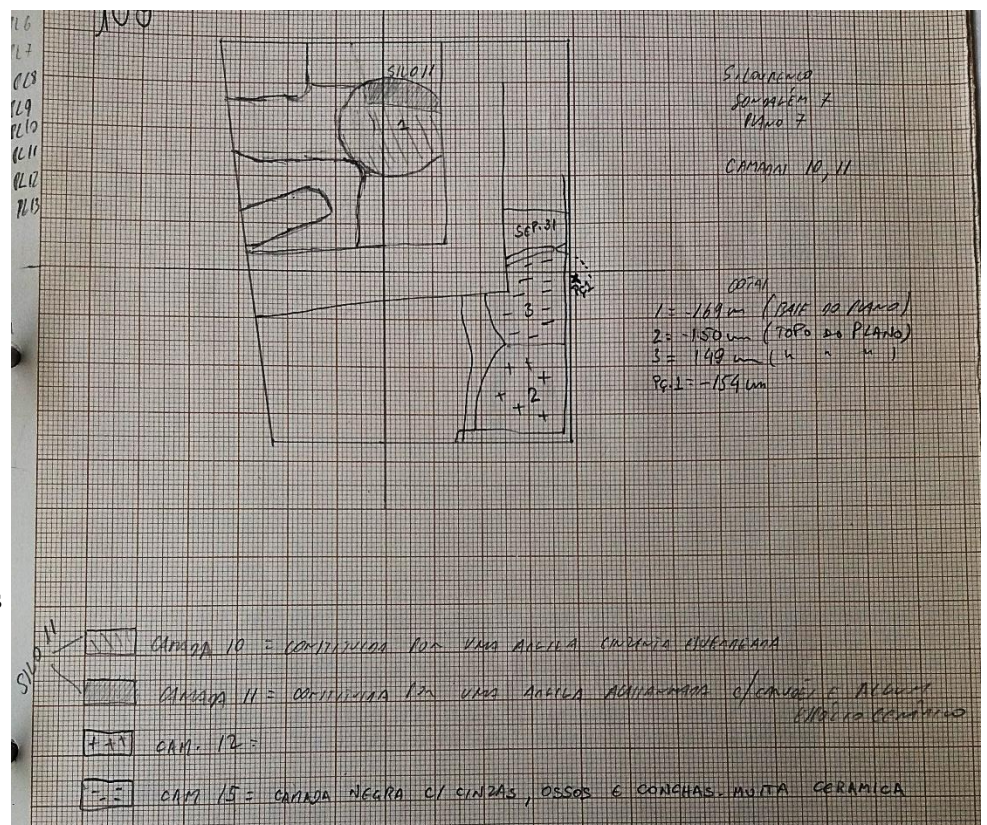 PL6
PL7
PL8
PL9
PL10
PL11
PL12
PL13
100
SILO 11
1
SEP. 31
3
2
S. LOURENÇO
SONDAGEM 7
PLANO 7
CAMADAS 10, 11
COTAS
1 = -169 cm (BASE DO PLANO)
2 = -150 cm (TOPO DO PLANO)
3 = 149 cm ( " " " )
Pç. 1 = -154 cm
SILO 11
CAMADA 10 = CONSTITUIDA POR UMA ARGILA CINZENTA
CAMADA 11 = CONSTITUIDA POR UMA ARGILA C/ CARVÕES E ALGUM
CERÂMICO
CAM. 12 =
CAM 15 = CAMADA NEGRA C/ CINZAS, OSSOS E CONCHAS. MUITA CERAMICA